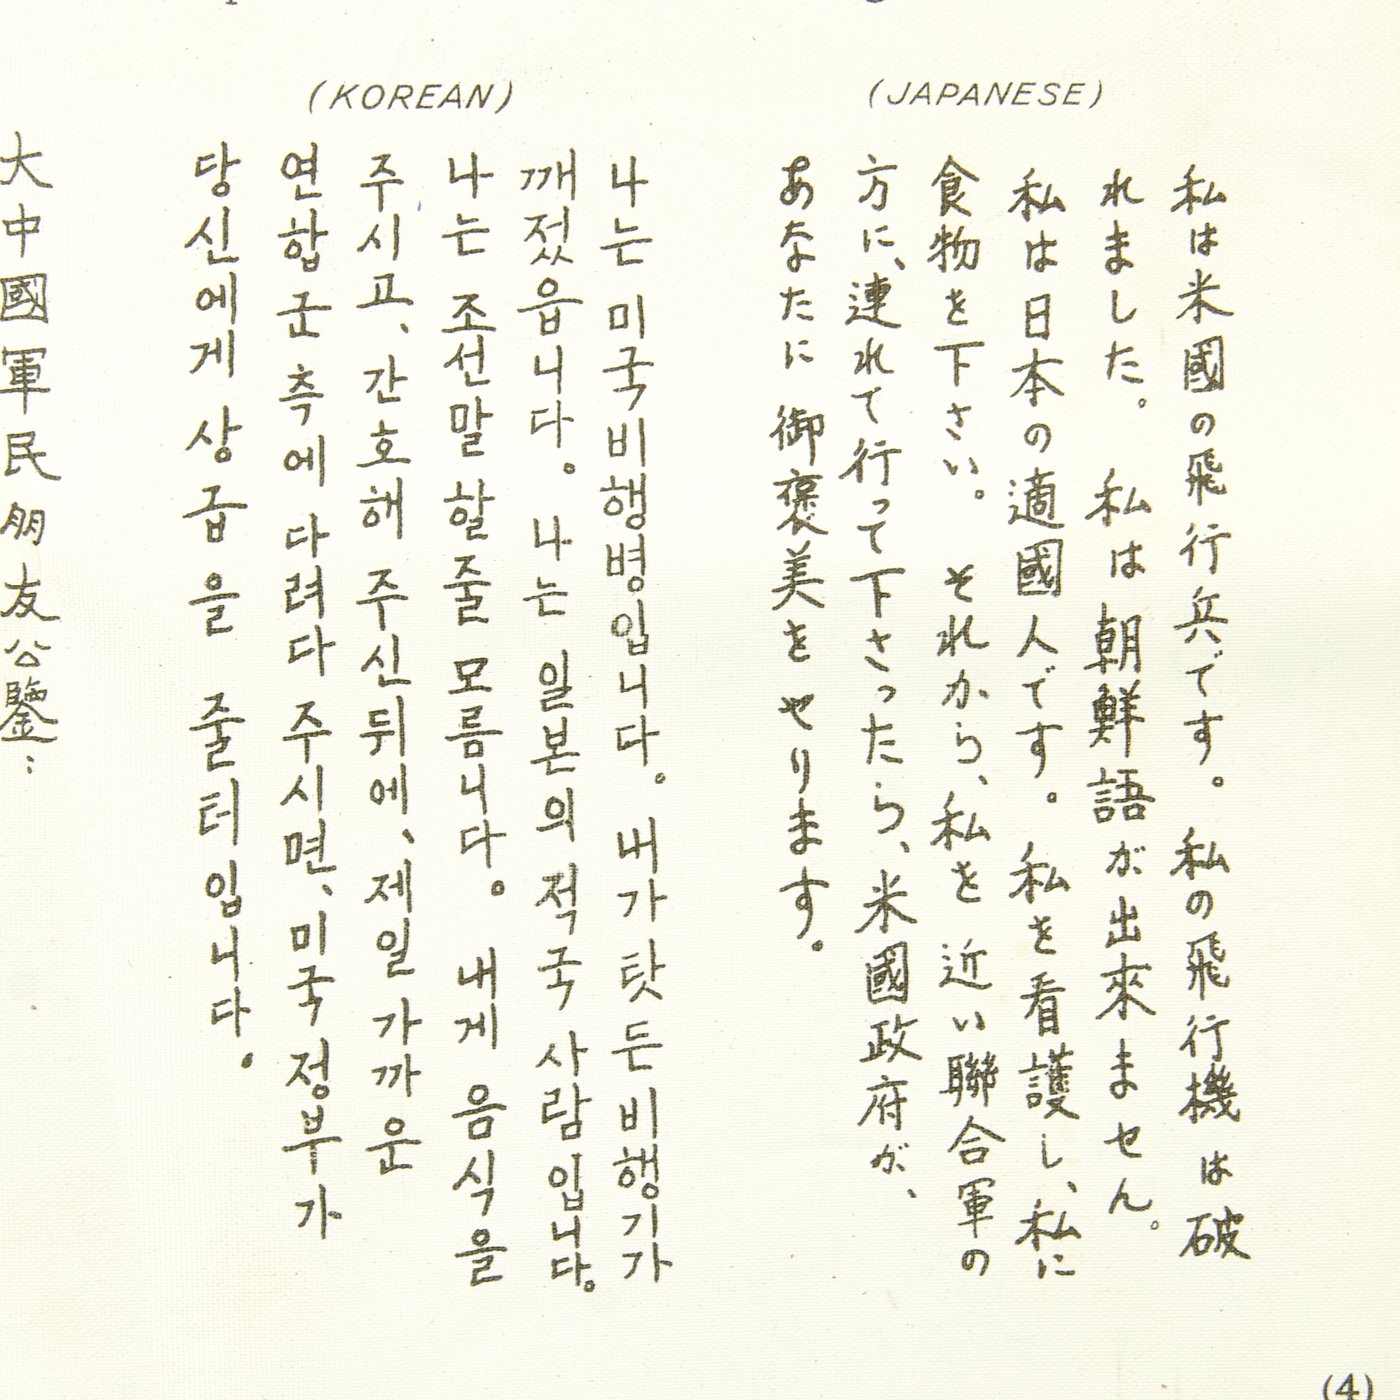 (JAPANESE)
私は米國の飛行兵です。私の飛行機は破
れました。私は朝鮮語が出來ません。
私は日本の適國人です。私を看護し、私に
食物を下さい。それから、私を近い聯合軍の
方に、連れて行って下さったら、米國政府が、
あなたに御褒美をやります。
(KOREAN)
나는 미국비행병입니다。 내가 탓든 비행기가
깨졌읍니다。 나는 일본의 적국 사람입니다。
나는 조선말 할줄 모름니다。 내게 음식을
주시고、간호해 주신뒤에、제일 가까운
연합군측에 다려다 주시면、미국 정부가
당신에게 상급을 줄터입니다.
大中國軍民朋友公鑒：
(4)